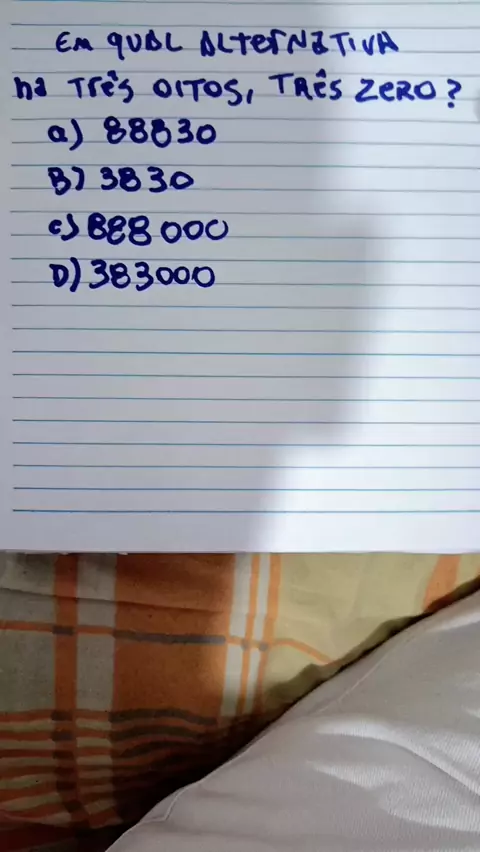 Em QUAL ALTERNATIVA
há TRêS OITOS, TRÊS ZERO?
a) 88830
B) 3830
c) 888000
D) 383000